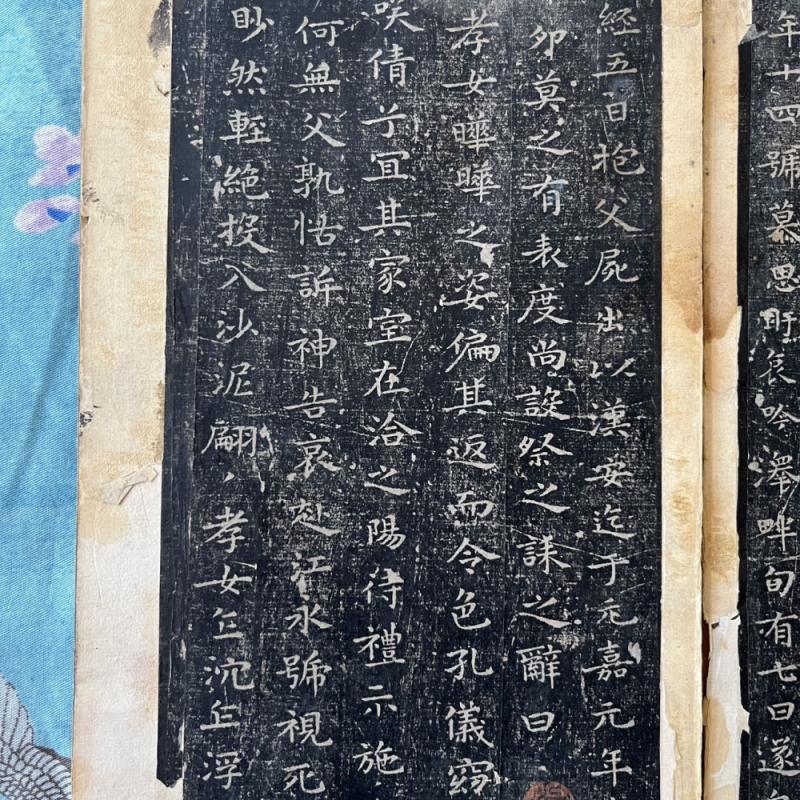 年十四號慕思盱哀吟澤畔旬有七日遂
經五日抱父屍出以漢安迄于元嘉元年
卯莫之有表度尚設祭之誄之辭曰
孝女曄曄之姿偏其返而令色孔儀窈
咲倩兮冝其家室在洽之陽待禮示施
何無父孰怙訴神告哀赴江永號視死
眇然輕絕投入沙泥翩丶孝女乍沉乍浮